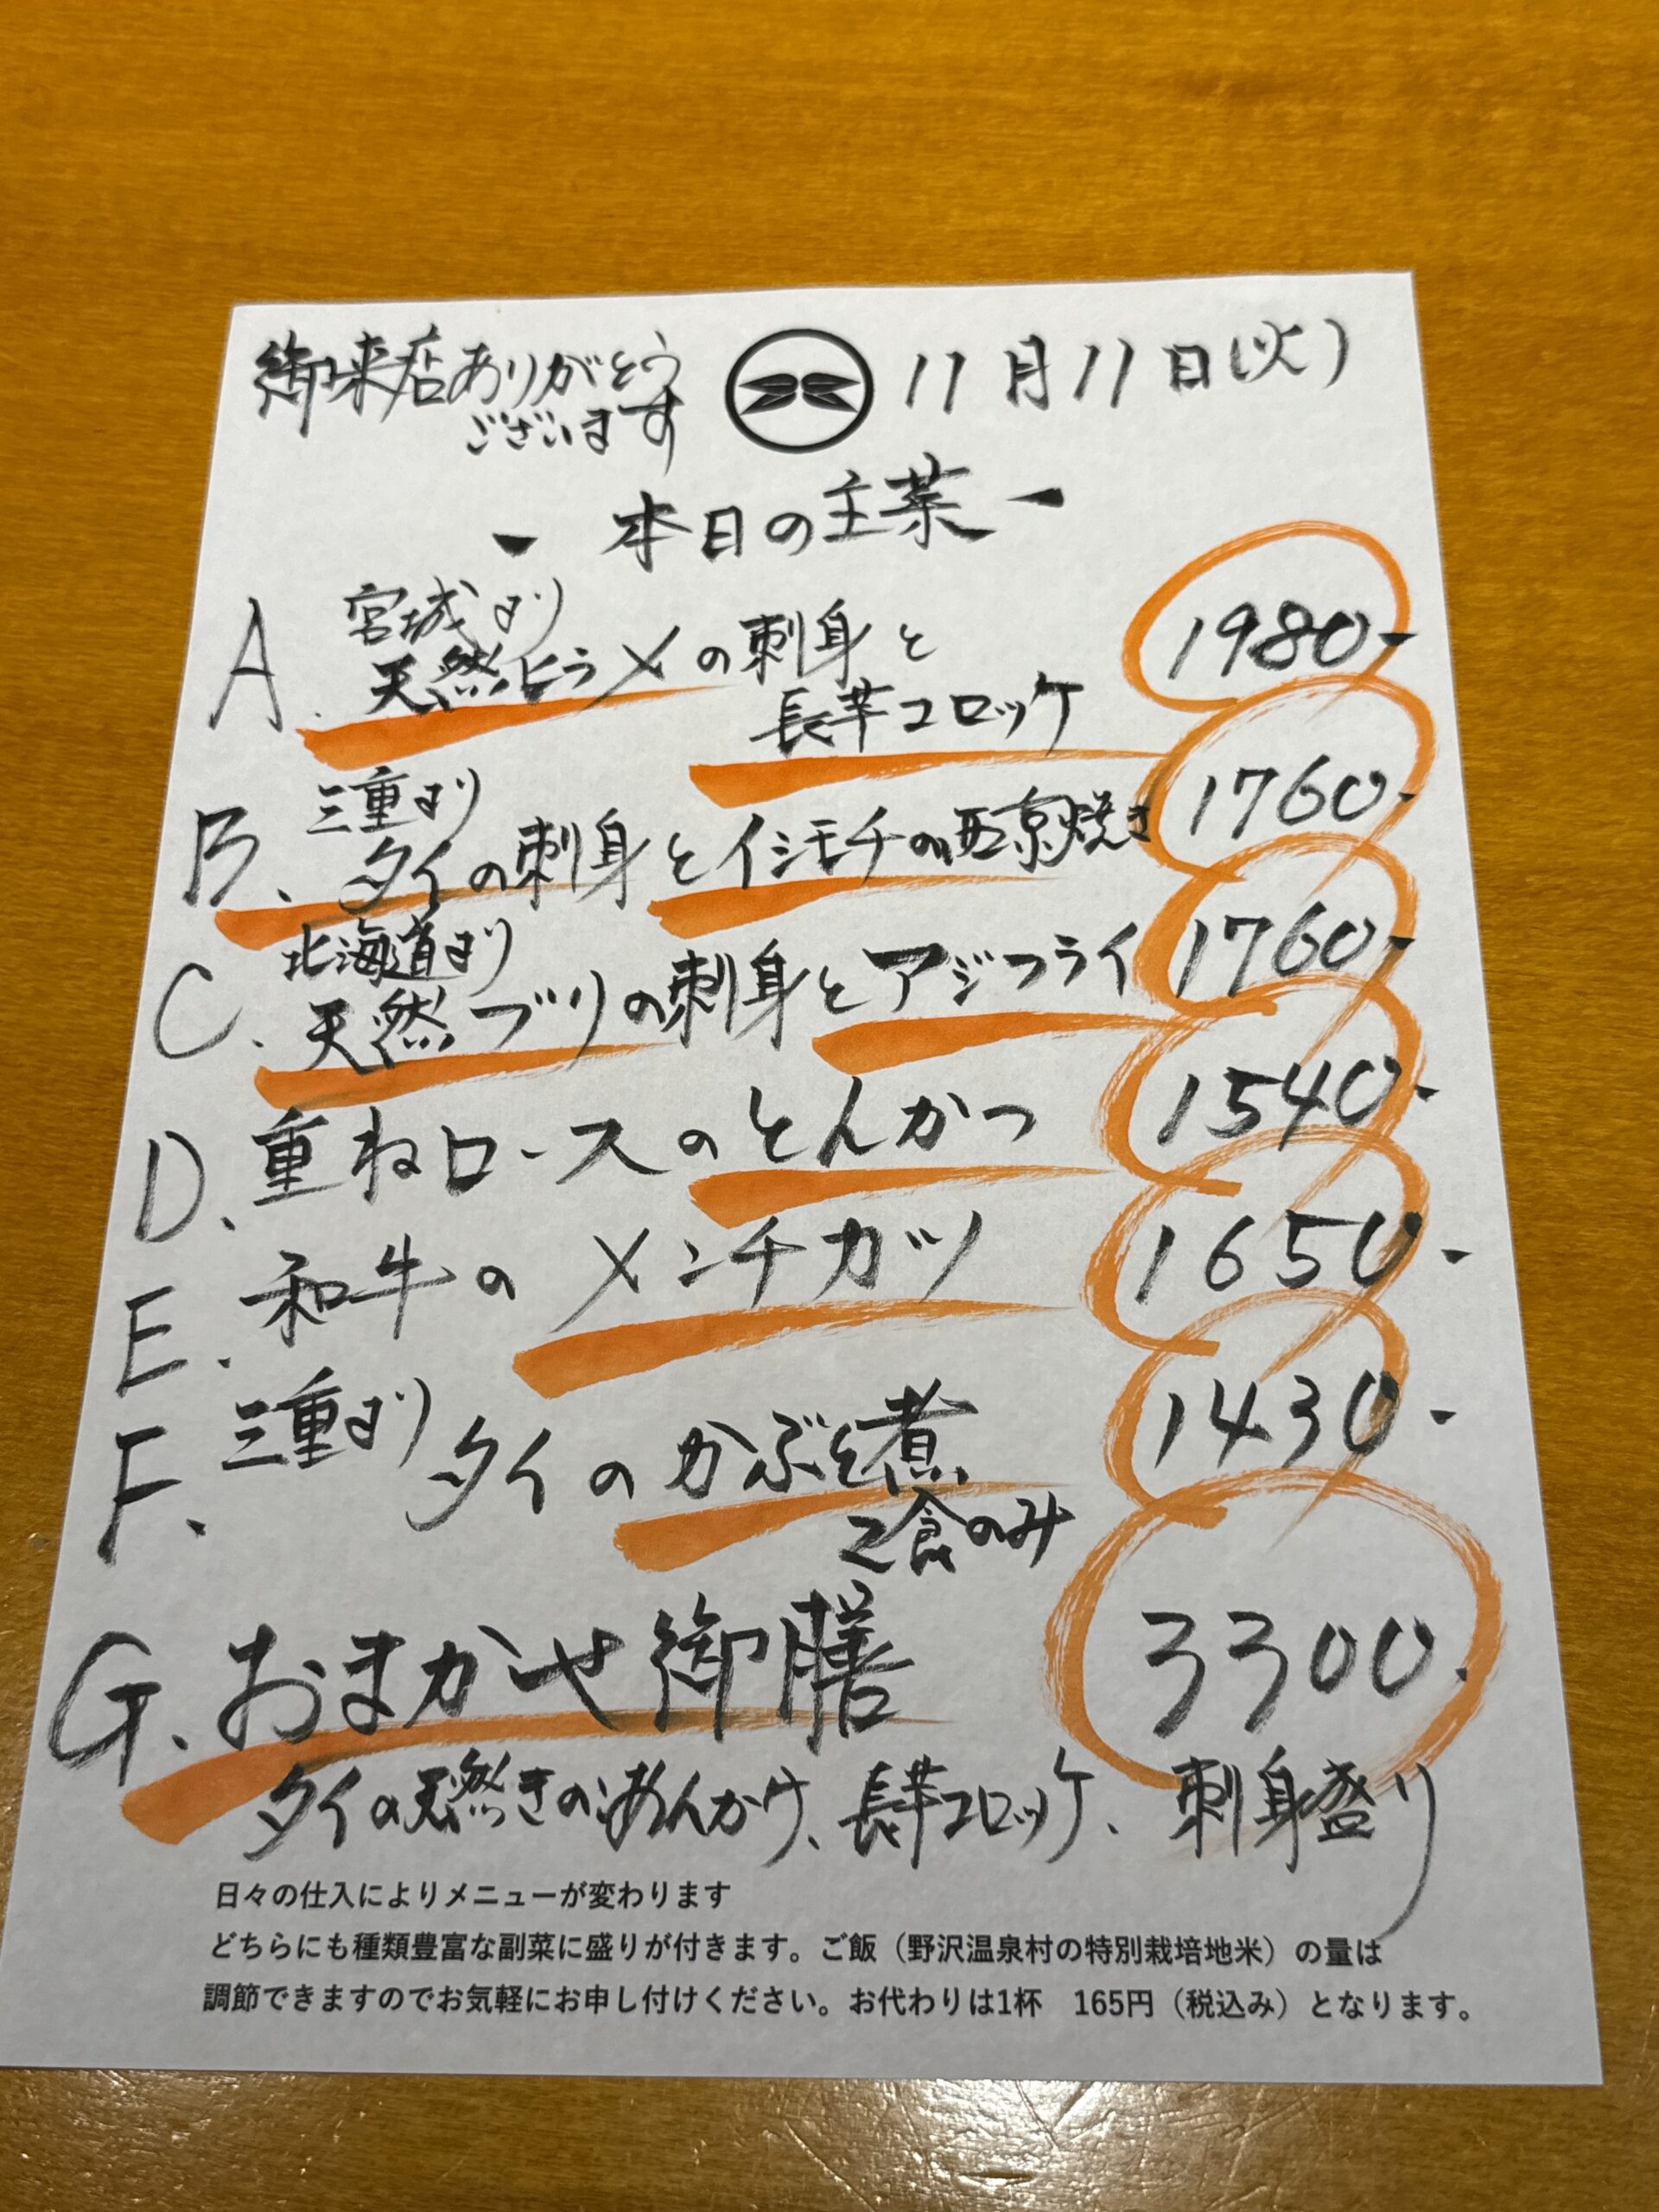 御来店ありがとう
ございます
11月11日(火)
- 本日の主菜 -
A. 宮城より
天然ヒラメの刺身と
長芋コロッケ
1980-
B. 三重より
タイの刺身とイシモチの西京焼き
1760-
C. 北海道より
天然ブリの刺身とアジフライ
1760-
D. 重ねロースのとんかつ
1540-
E. 和牛のメンチカツ
1650-
F. 三重より タイのかぶと煮
1430-
2食のみ
G. おまかせ御膳
3300.
タイの天然きのこあんかけ、長芋コロッケ、刺身盛り
日々の仕入によりメニューが変わります
どちらにも種類豊富な副菜に盛りが付きます。ご飯（野沢温泉村の特別栽培地米）の量は
調節できますのでお気軽にお申し付けください。お代わりは1杯 165円（税込み）となります。